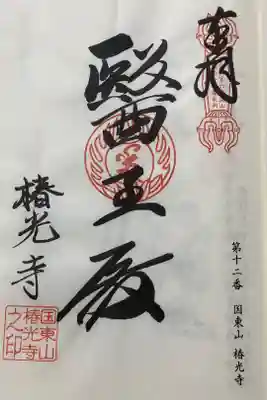 奉拝
醫王殿
椿光寺
第十二番 国東山 椿光寺
国東山
椿光寺
之印